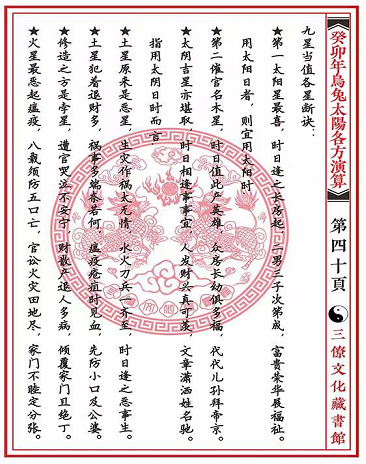 癸卯年烏兔太陽各方演算
第四十頁
三僚文化藏書館
九星当值各星断诀：
★第一太阳星最喜，时日逢之长房起，一男三子次第成，富贵荣华展福祉。
用太阳日者，则宜用太阳时
★第二催官名木星，时日值此产英雄，众房长幼俱多福，代代儿孙拜帝京。
★太阴吉星亦堪取，时日相逢事事宜，人发财兴真可羡，文章潇洒姓名驰。
指用太阴日时而言
★土星原来是恶星，生灾作祸太无情，水火刀兵一齐至，时日逢之恶事生。
★土星犯着退财多，祸事多端奈若何，瘟疫疮疽时见血，先防小口及公婆。
★修造之方是孛星，遭官哭泣不安宁，财散产退人多病，倾覆家门且绝丁。
★火星最恶起瘟疫，八载须防五口亡，官讼火灾田地尽，家门不睦定分张。